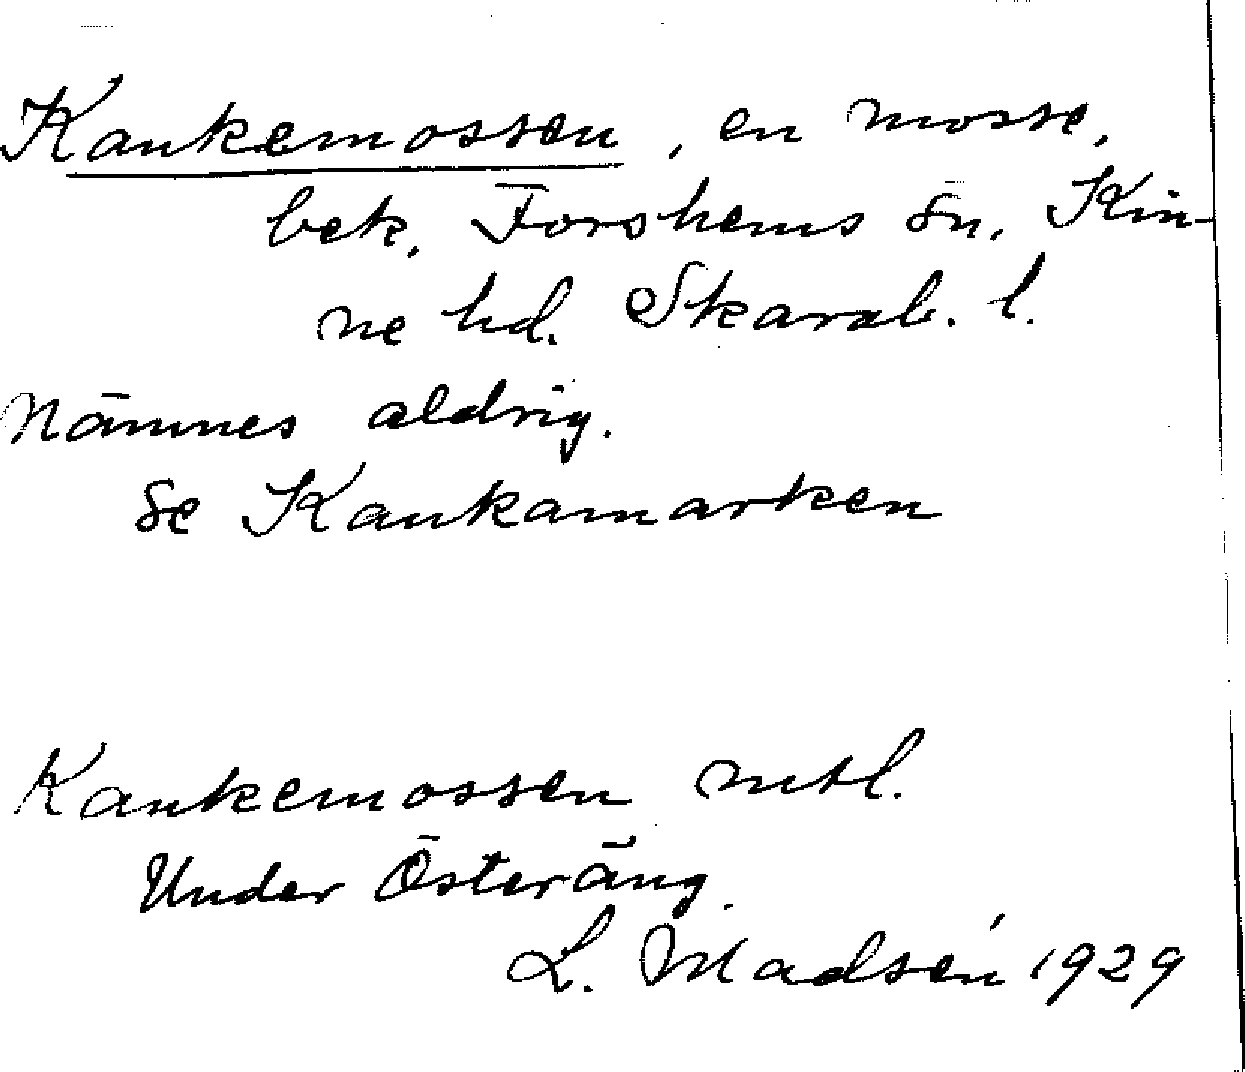 Kankemossen, en mosse,
bek. Forshems sn. Kin-
ne hd. Skarab. l.
Nämnes aldrig.
Se Kankamarken
Kankemossen mtl.
Under Österäng.
L. Madsén 1929